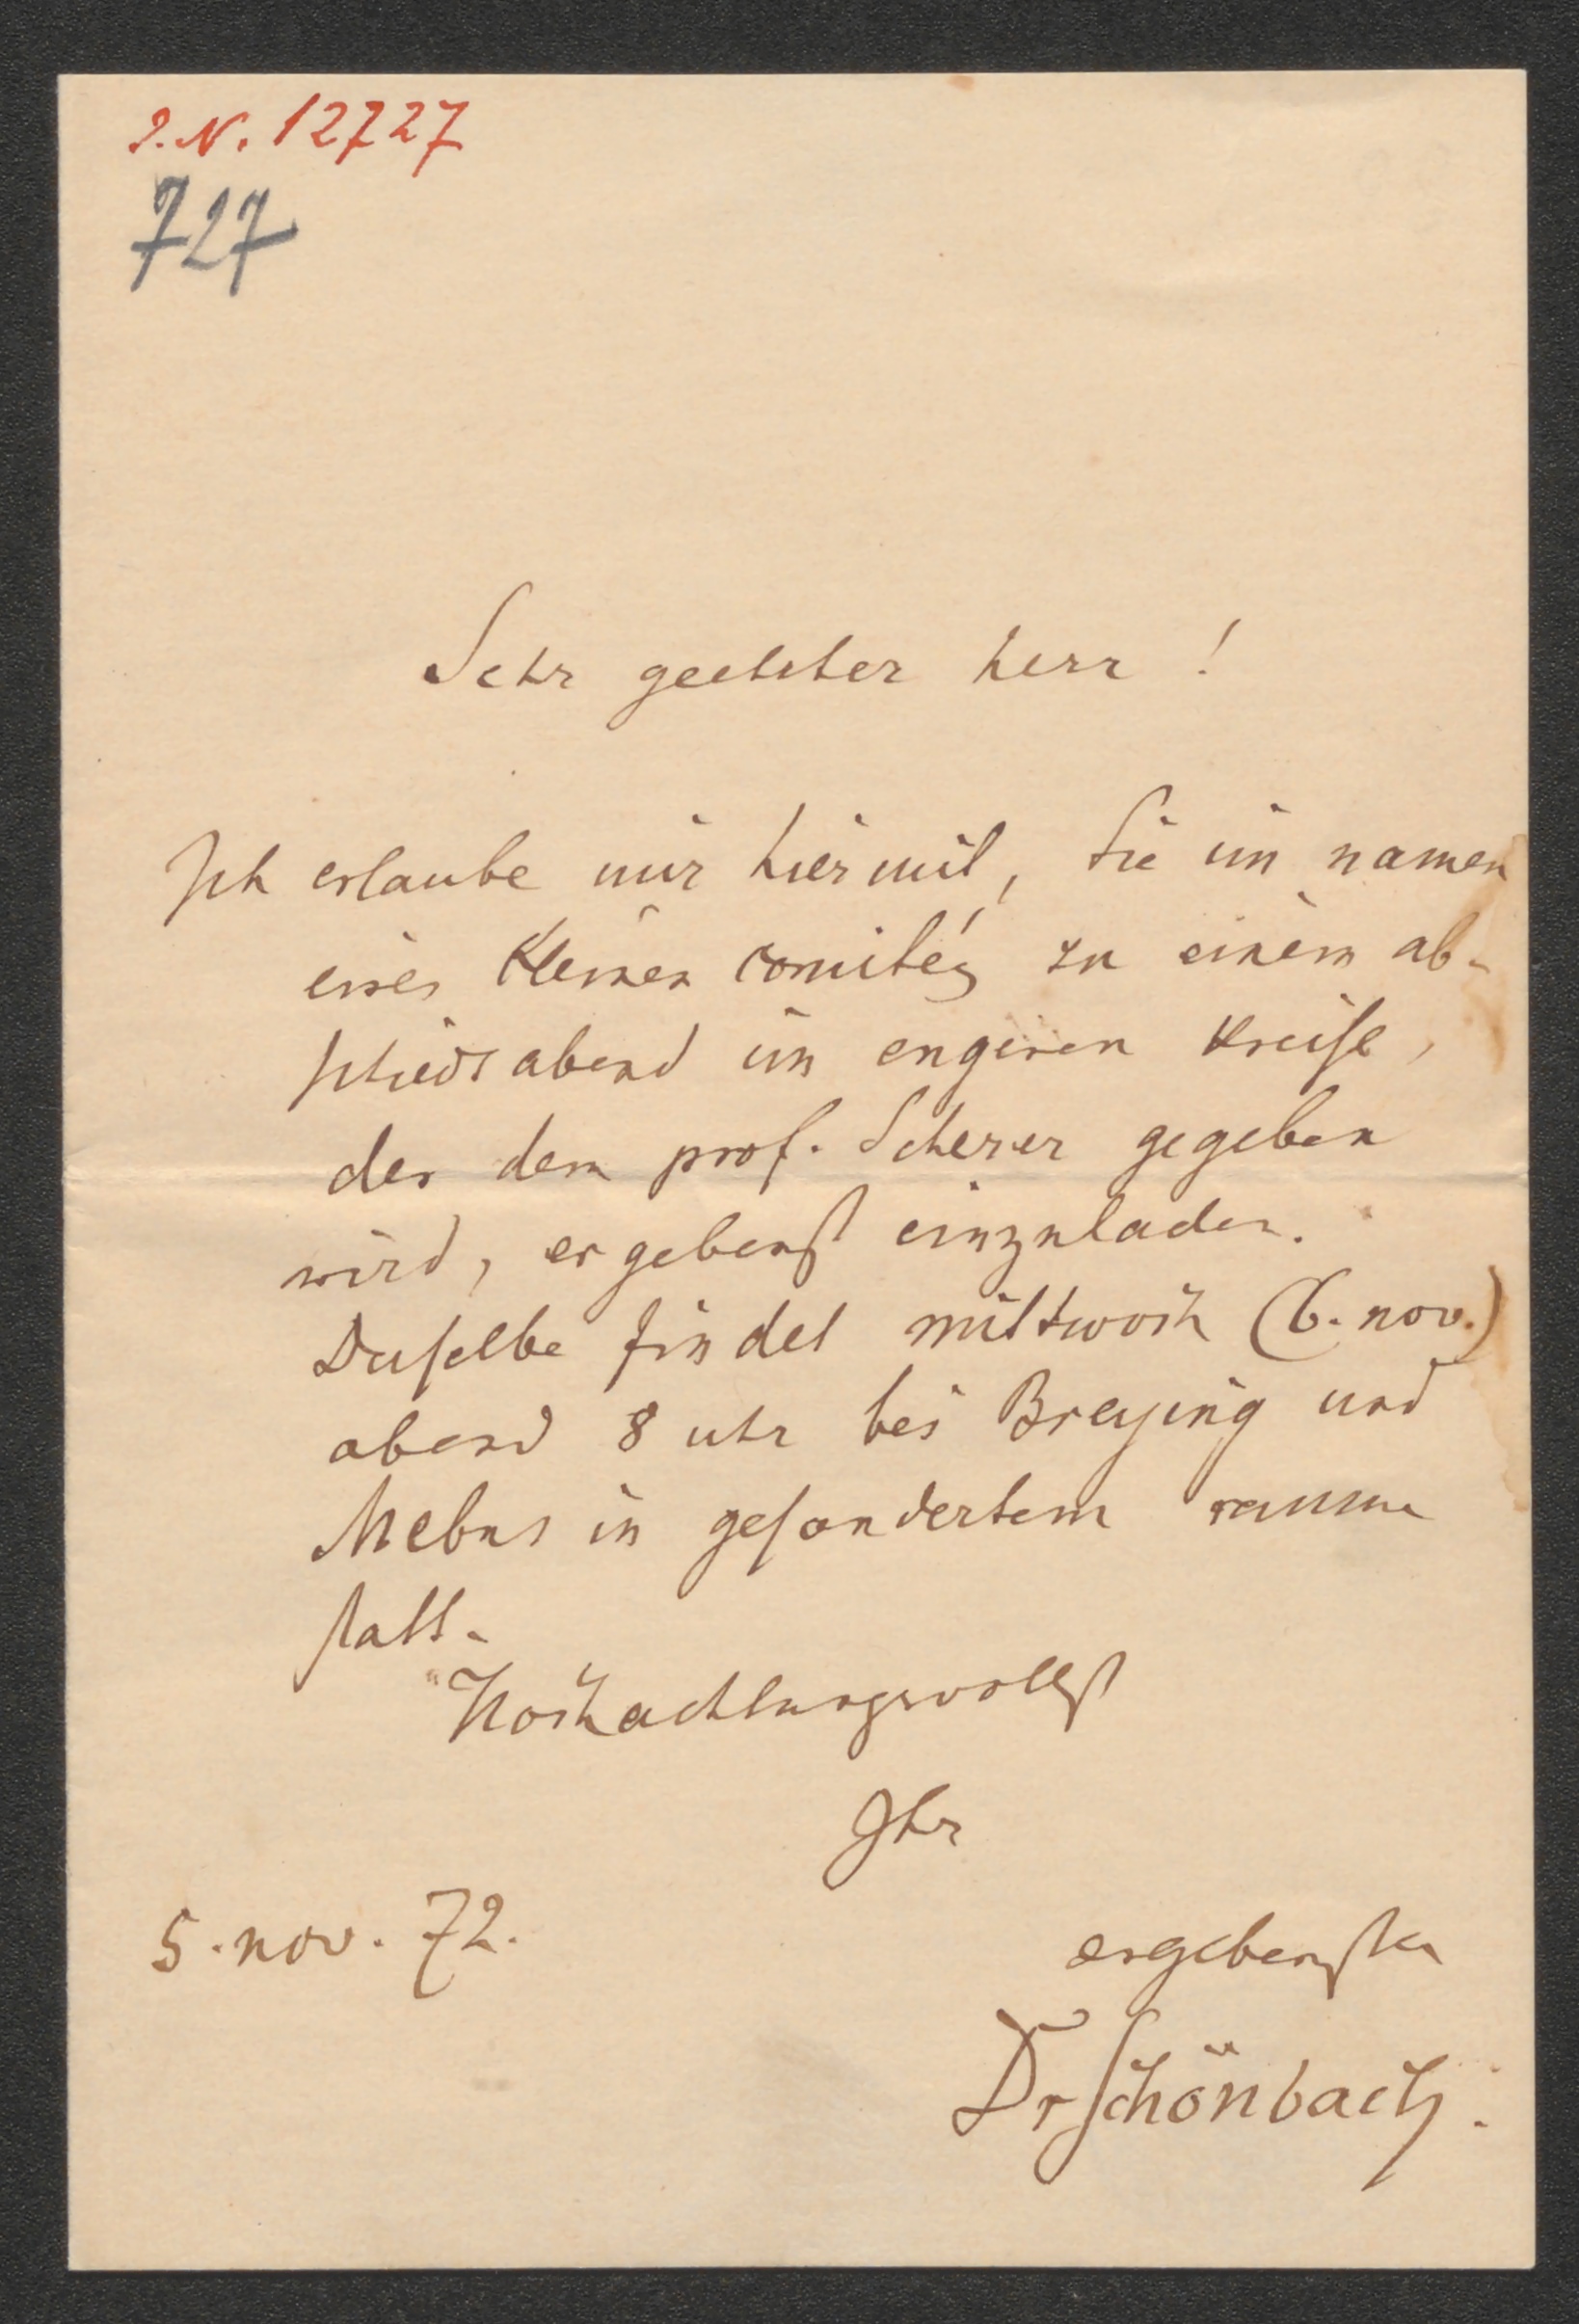 I.N. 12727
727
Sehr geehrter herr !
Ich erlaube mir hiermit, Sie im namen
eines kleinen comités zu einem ab-
schiedsabend im engeren kreise,
der dem prof. Scherer gegeben
wird, ergebenst einzuladen.
Derselbe findet mittwoch (6. nov.)
abend 8 uhr bei Breying und
Mebus in gesondertem raume
statt.
Hochachtungsvollst
Ihr
5. nov. 72.
ergebenster
Dr Schönbach.